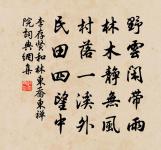 野雲閑帶雨
林木靜無風
村落一溪外
民田四望中
李存賢和林東齋東禪
院詞典網集